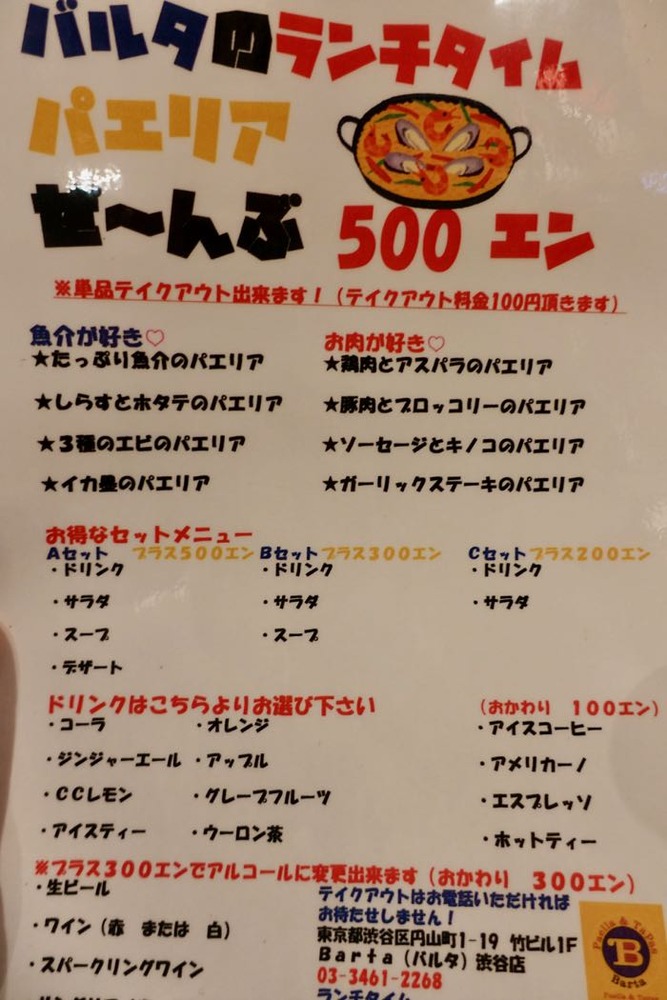 バルタのランチタイム
パエリア
ぜ〜んぶ 500 エン
※単品テイクアウト出来ます！（テイクアウト料金100円頂きます）
魚介が好き♡
★たっぷり魚介のパエリア
★しらすとホタテのパエリア
★３種のエビのパエリア
★イカ墨のパエリア
お肉が好き♡
★鶏肉とアスパラのパエリア
★豚肉とブロッコリーのパエリア
★ソーセージとキノコのパエリア
★ガーリックステーキのパエリア
お得なセットメニュー
Ａセット プラス５００エン
・ドリンク
・サラダ
・スープ
・デザート
Ｂセット プラス３００エン
・ドリンク
・サラダ
・スープ
Ｃセット プラス２００エン
・ドリンク
・サラダ
ドリンクはこちらよりお選び下さい （おかわり １００エン）
・コーラ
・ジンジャーエール
・ＣＣレモン
・アイスティー
・オレンジ
・アップル
・グレープフルーツ
・ウーロン茶
・アイスコーヒー
・アメリカーノ
・エスプレッソ
・ホットティー
※プラス３００エンでアルコールに変更出来ます（おかわり ３００エン）
・生ビール
・ワイン（赤 または 白）
・スパークリングワイン
テイクアウトはお電話いただければ
お待たせしません！
東京都渋谷区円山町1-19 竹ビル1F
Ｂａｒｔａ（バルタ）渋谷店
03-3461-2268
ランチタイム
Paella & TaPas
B
Barta